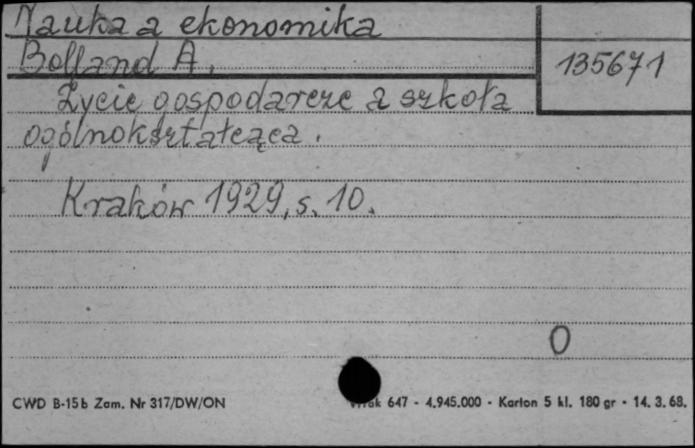 Nauka a ekonomika
Bolland A.
135671
Życie gospodarcze a szkoła
ogólnokształcąca.
Kraków 1929, s. 10.
0
CWD B-15b Zam. Nr 317/DW/ON
647 - 4.945.000 - Karton 5 kl. 180 gr - 14. 3. 68.